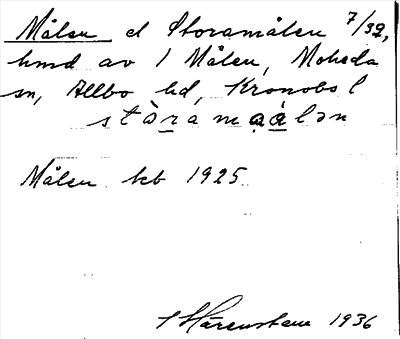 Målen el Storamålen 7/32,
hmd av 1 Målen, Moheda
sn, Allbo hd, Kronobs l
stòramaálən
Målen kb 1925
S Härenstam 1936